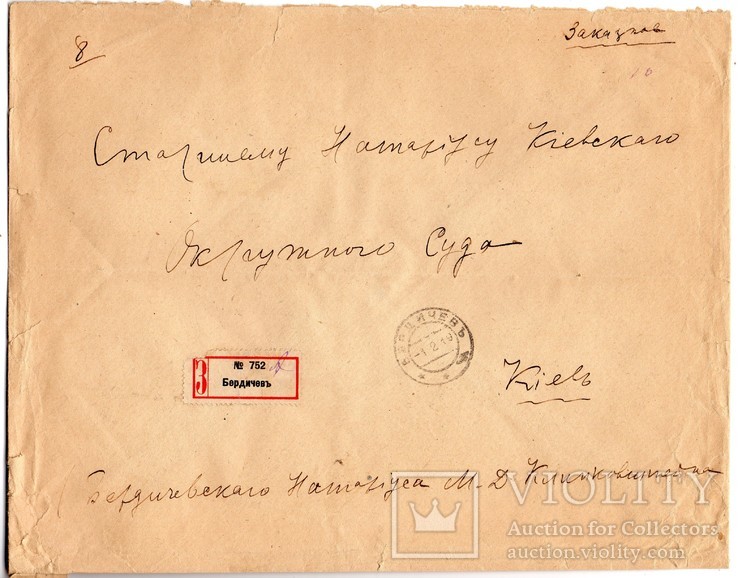 Заказное
8
Старшему Нотаріусу Кіевскаго
Окружного Суда
БЕРДИЧЕВЪ
-1.2.19
№ 752
З
Бердичевъ
Кіевъ
Бердичевскаго Нотаріуса М. Д.
VIOLITY
Auction for Collectors
auction.violity.com